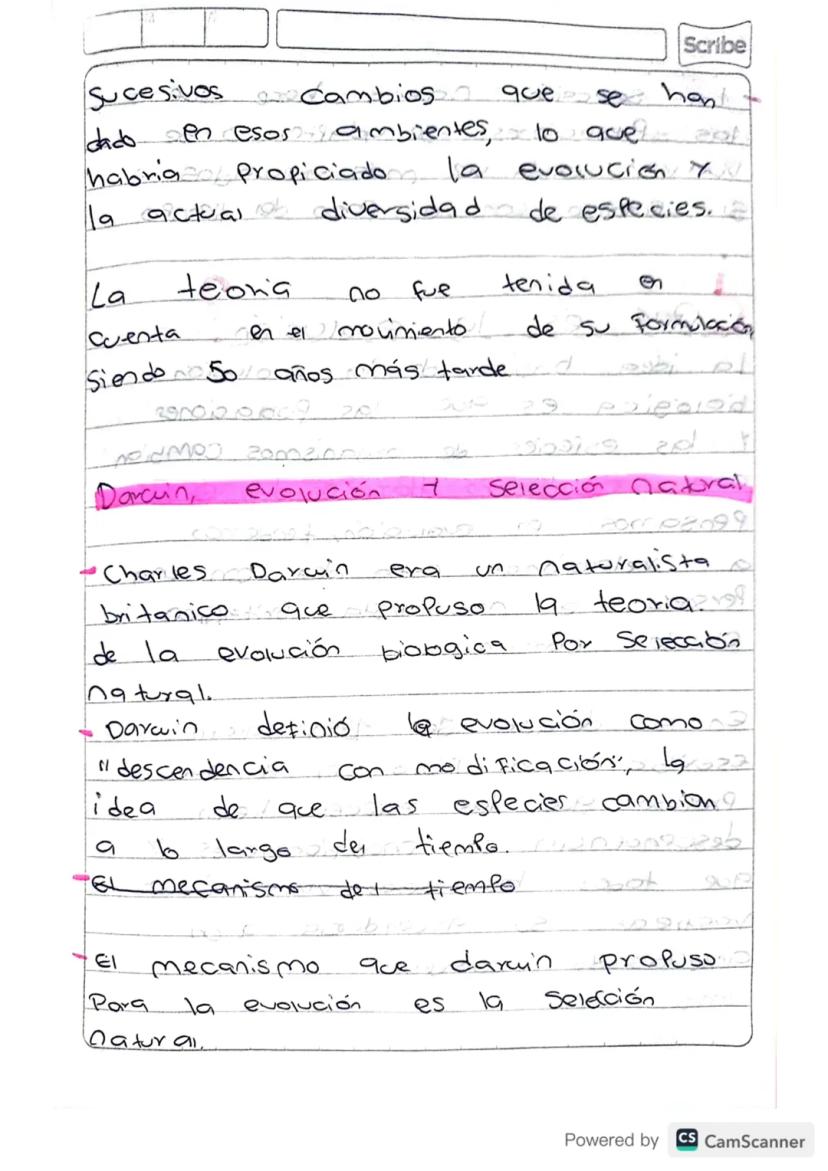 Scribe
Sucesivos cambios que se han
dado en esos ambientes, lo que
habría propiciado la evolución y
la actual diversidad de especies.
La teoria no fue tenida en
cuenta en el movimiento de su Formulación
Siendo 50 años más tarde
Darwin, evolución y selección natural
- Charles Darwin era un naturalista
britanico que propuso la teoria
de la evolución biologica Por Selección
natural.
- Darwin definió la evolución como
"descendencia con modificación", la
idea de que las especies cambian
a lo largo del tiempo.
- El mecanismo del tiempo
- El mecanismo que darwin propuso
Para la evolución es la Selección
natural.
Powered by CS CamScanner